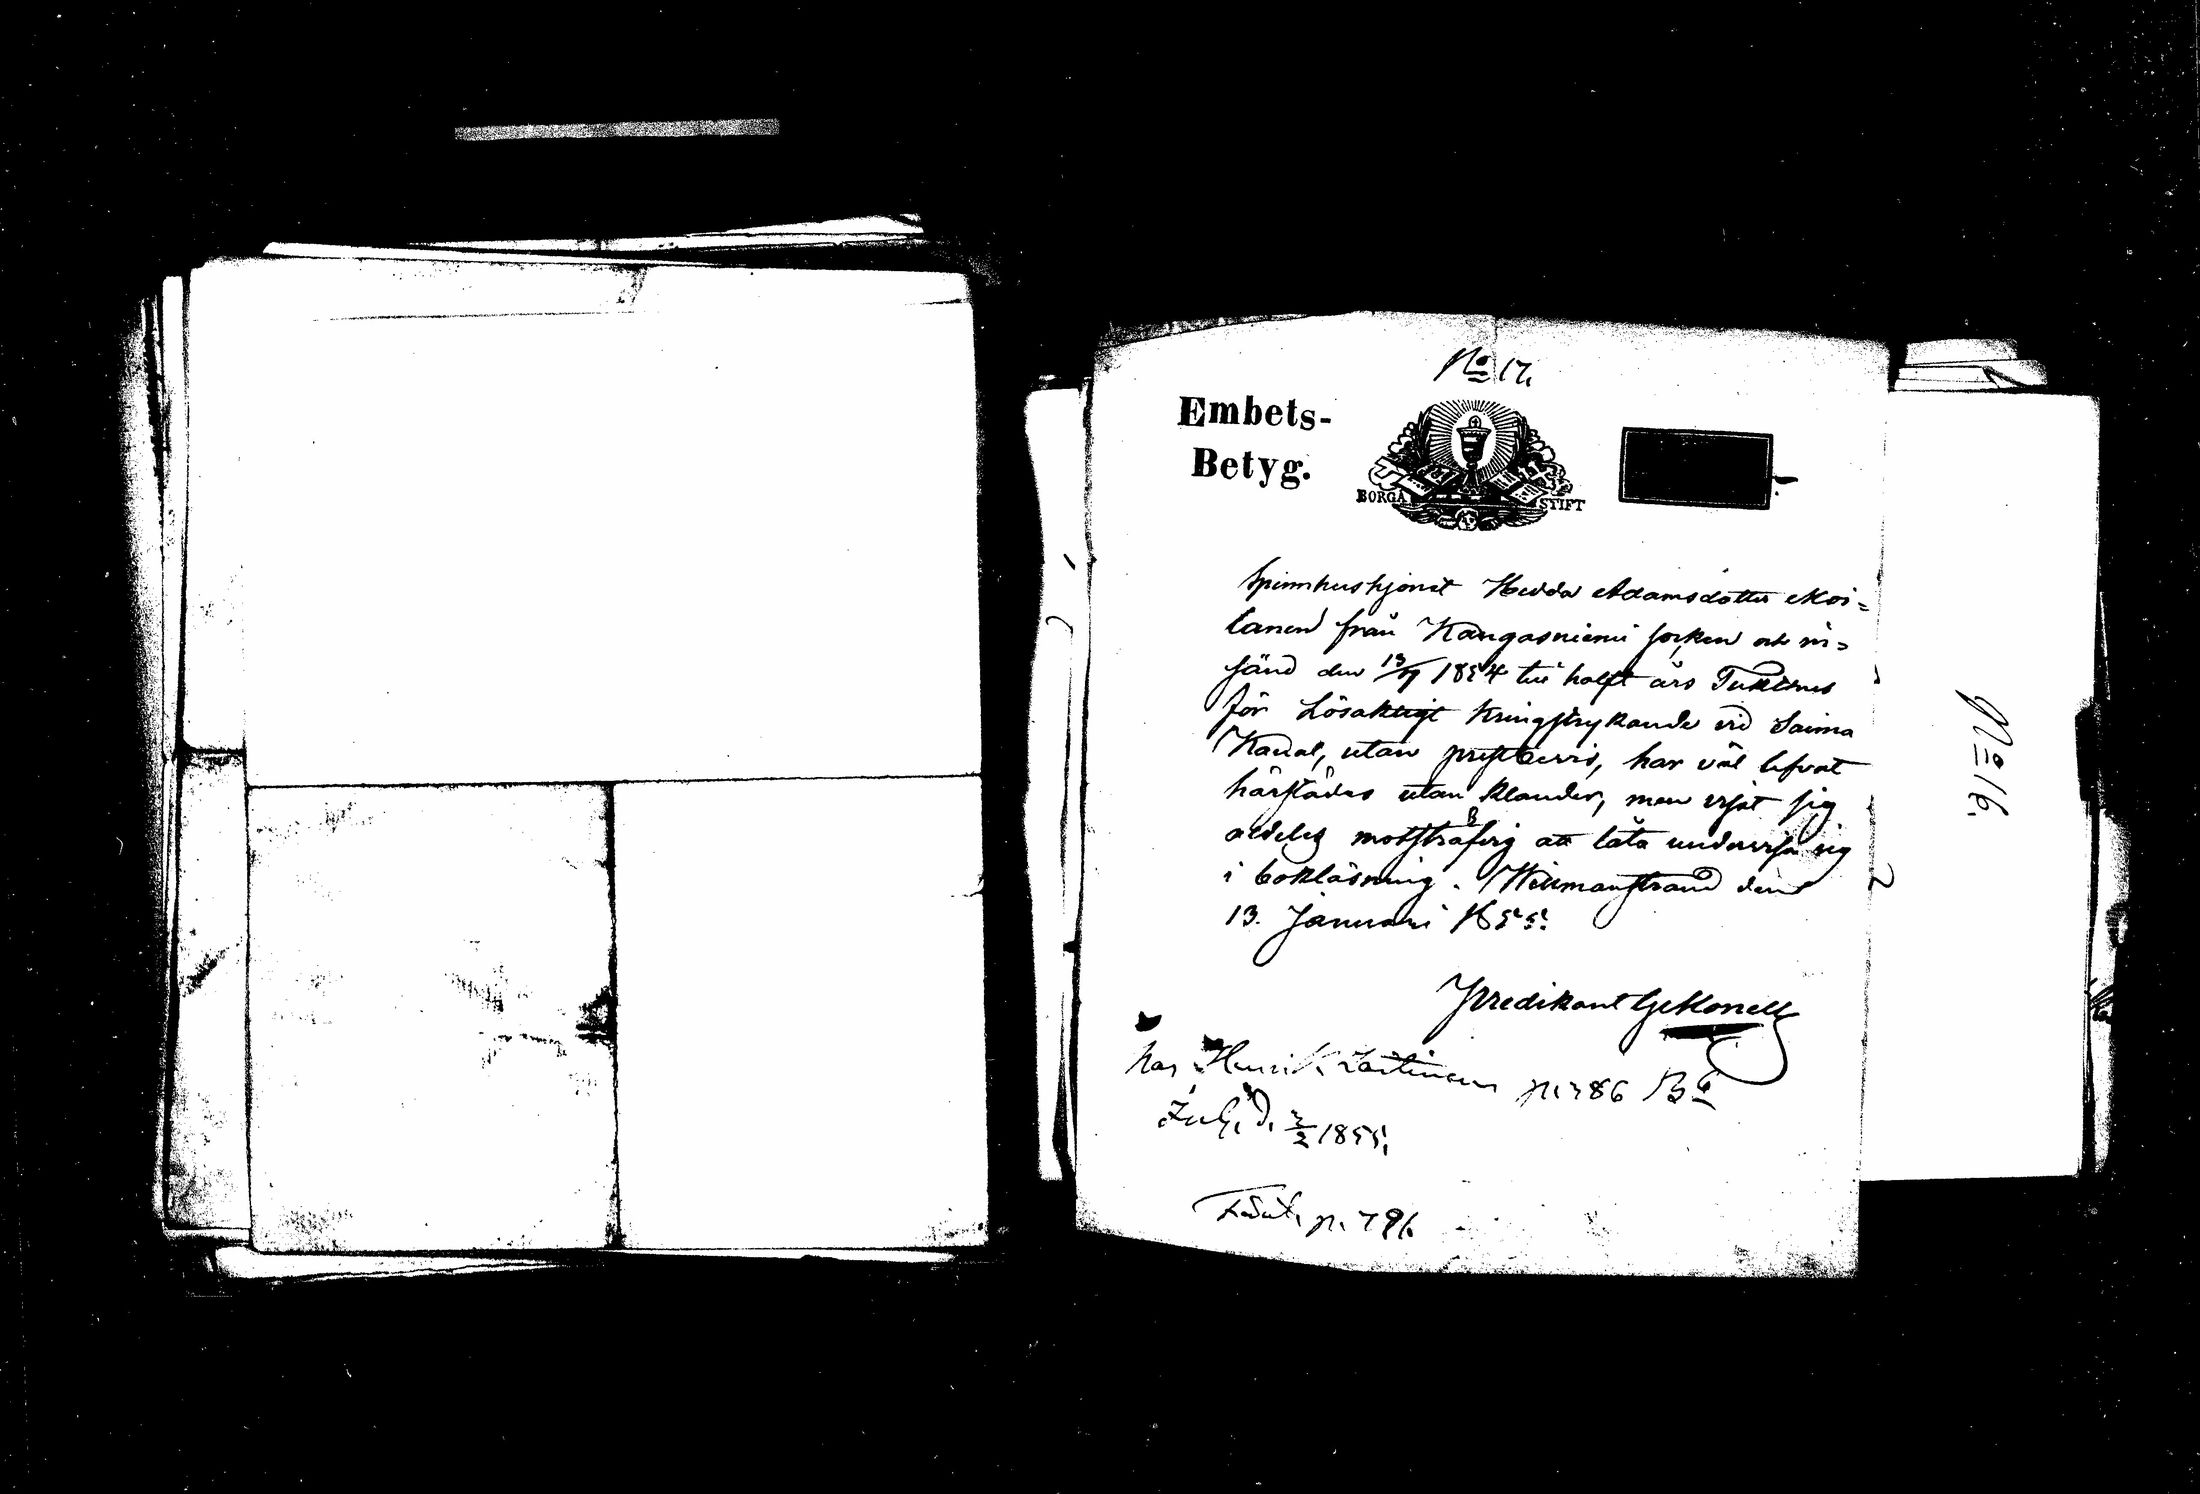 No 17.
Embets-
Betyg.
BORGÅ STIFT
Spinnhushjonet Hedda Adamsdotter Moi=
lanen från Kangasniemi socken och in=
sänd den 13/7 1854 till halft års Tukthus
för Lösaktigt kringstrykande vid Saima
Kanal, utan prestbevis, har väl lefvat
härstädes utan klander, men visat sig
aldeles motsträfvig att låta undervisa sig
i bokläsning. Willmanstrand den
13. Januari 1855.
Predikant
has Henrik p. 786 B
d. 2/2 1855.
p. 796
No 16.